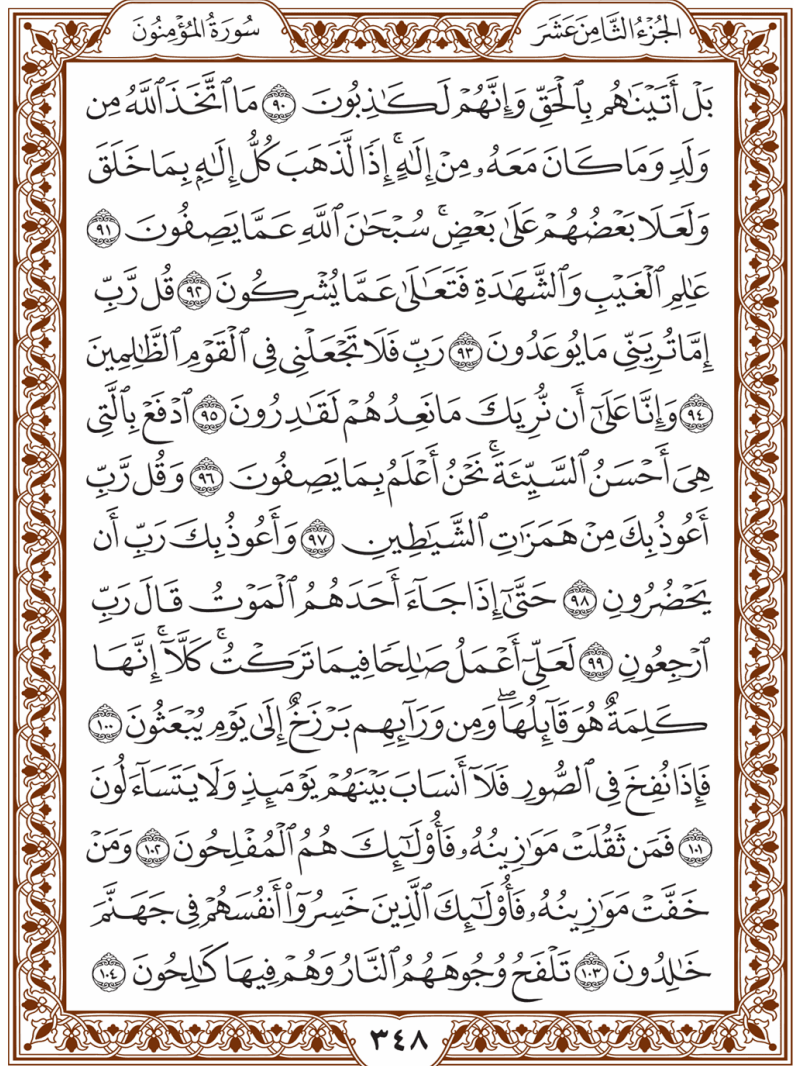 الجُزْءُ الثَّامِنَ عَشَرَ
سُورَةُ المُؤْمِنُونَ
بَلْ أَتَيْنَٰهُم بِٱلْحَقِّ وَإِنَّهُمْ لَكَٰذِبُونَ ۝٩٠ مَا ٱتَّخَذَ ٱللَّهُ مِن
وَلَدٍ وَمَا كَانَ مَعَهُۥ مِنْ إِلَٰهٍ ۚ إِذًا لَّذَهَبَ كُلُّ إِلَٰهٍۭ بِمَا خَلَقَ
وَلَعَلَا بَعْضُهُمْ عَلَىٰ بَعْضٍ ۚ سُبْحَٰنَ ٱللَّهِ عَمَّا يَصِفُونَ ۝٩١
عَٰلِمِ ٱلْغَيْبِ وَٱلشَّهَٰدَةِ فَتَعَٰلَىٰ عَمَّا يُشْرِكُونَ ۝٩٢ قُل رَّبِّ
إِمَّا تُرِيَنِّى مَا يُوعَدُونَ ۝٩٣ رَبِّ فَلَا تَجْعَلْنِى فِى ٱلْقَوْمِ ٱلظَّٰلِمِينَ
۝٩٤ وَإِنَّا عَلَىٰٓ أَن نُّرِيَكَ مَا نَعِدُهُمْ لَقَٰدِرُونَ ۝٩٥ ٱدْفَعْ بِٱلَّتِى
هِىَ أَحْسَنُ ٱلسَّيِّئَةَ ۚ نَحْنُ أَعْلَمُ بِمَا يَصِفُونَ ۝٩٦ وَقُل رَّبِّ
أَعُوذُ بِكَ مِنْ هَمَزَٰتِ ٱلشَّيَٰطِينِ ۝٩٧ وَأَعُوذُ بِكَ رَبِّ أَن
يَحْضُرُونِ ۝٩٨ حَتَّىٰٓ إِذَا جَآءَ أَحَدَهُمُ ٱلْمَوْتُ قَالَ رَبِّ
ٱرْجِعُونِ ۝٩٩ لَعَلِّىٓ أَعْمَلُ صَٰلِحًا فِيمَا تَرَكْتُ ۚ كَلَّآ ۚ إِنَّهَا
كَلِمَةٌ هُوَ قَآئِلُهَا ۖ وَمِن وَرَآئِهِم بَرْزَخٌ إِلَىٰ يَوْمِ يُبْعَثُونَ ۝١٠٠
فَإِذَا نُفِخَ فِى ٱلصُّورِ فَلَآ أَنسَابَ بَيْنَهُمْ يَوْمَئِذٍ وَلَا يَتَسَآءَلُونَ
۝١٠١ فَمَن ثَقُلَتْ مَوَٰزِينُهُۥ فَأُو۟لَٰٓئِكَ هُمُ ٱلْمُفْلِحُونَ ۝١٠٢ وَمَنْ
خَفَّتْ مَوَٰزِينُهُۥ فَأُو۟لَٰٓئِكَ ٱلَّذِينَ خَسِرُوٓا۟ أَنفُسَهُمْ فِى جَهَنَّمَ
خَٰلِدُونَ ۝١٠٣ تَلْفَحُ وُجُوهَهُمُ ٱلنَّارُ وَهُمْ فِيهَا كَٰلِحُونَ ۝١٠٤
٣٤٨